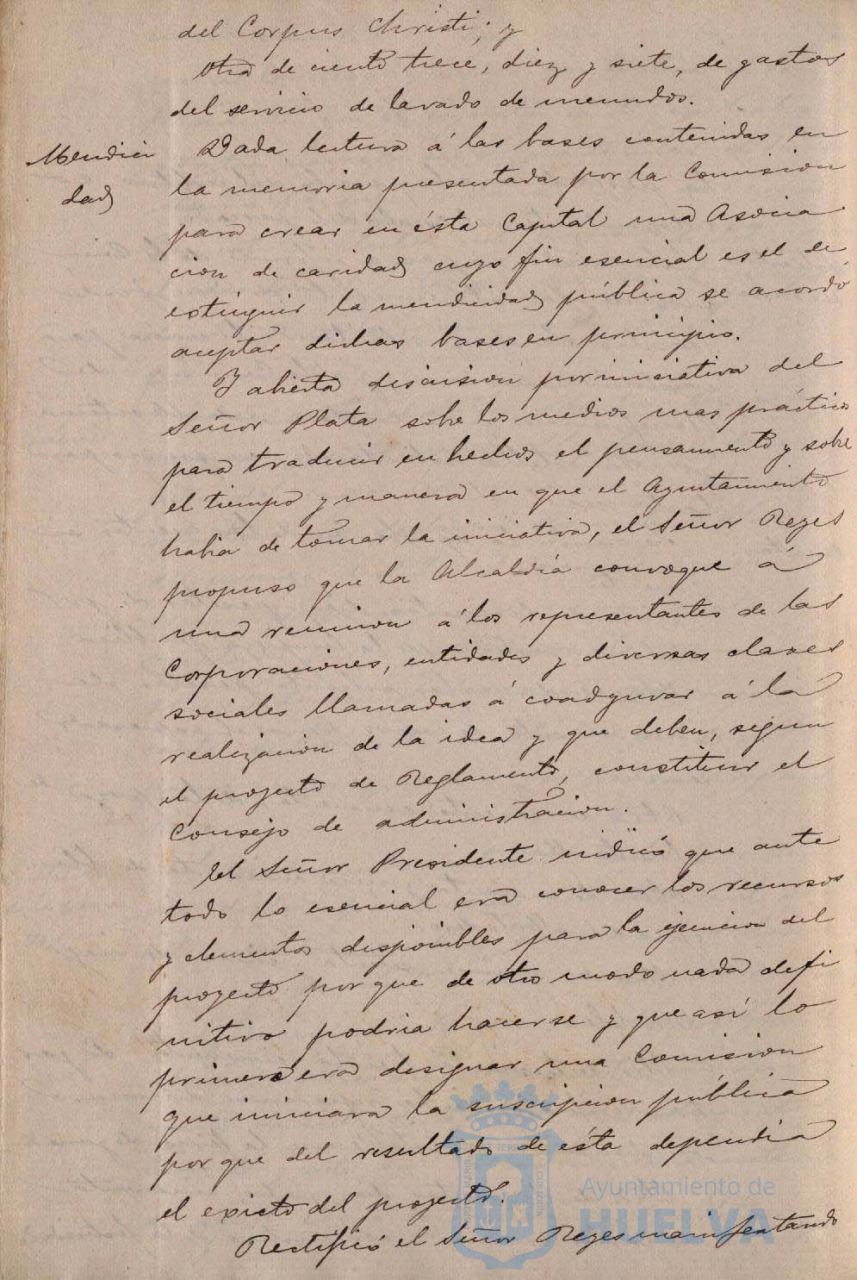 del Corpus Christi; y
Otra de ciento trece, diez y siete, de gastos
del servicio de lavado de menudos.
Mendici
dad
Dada lectura á las bases contenidas en
la memoria presentada por la Comision
para crear en ésta Capital una Asocia
cion de caridad cuyo fin esencial es el de
extinguir la mendicidad pública se acordó
aceptar dichas bases en principio.
Y abierta discusion por iniciativa del
Señor Plata sobre los medios mas prácticos
para traducir en hechos el pensamiento y sobre
el tiempo y manera en que el Ayuntamiento
habia de tomar la iniciativa, el Señor Reyes
propuso que la Alcaldía convoque á
una reunion á los representantes de las
Corporaciones, entidades y diversas clases
sociales llamadas á coadyuvar á la
realizacion de la idea y que deben, segun
el proyecto de Reglamento, constituir el
Consejo de administracion.
El Señor Presidente indicó que ante
todo lo esencial era conocer los recursos
y elementos disponibles para la ejecucion del
proyecto por que de otro modo nada defi
nitivo podria hacerse y que así lo
primero era designar una Comision
que iniciara la suscripcion pública
por que del resultado de ésta dependia
el exicto del proyecto.
Rectificó el Señor Reyes manifestando
Ayuntamiento de
HUELVA